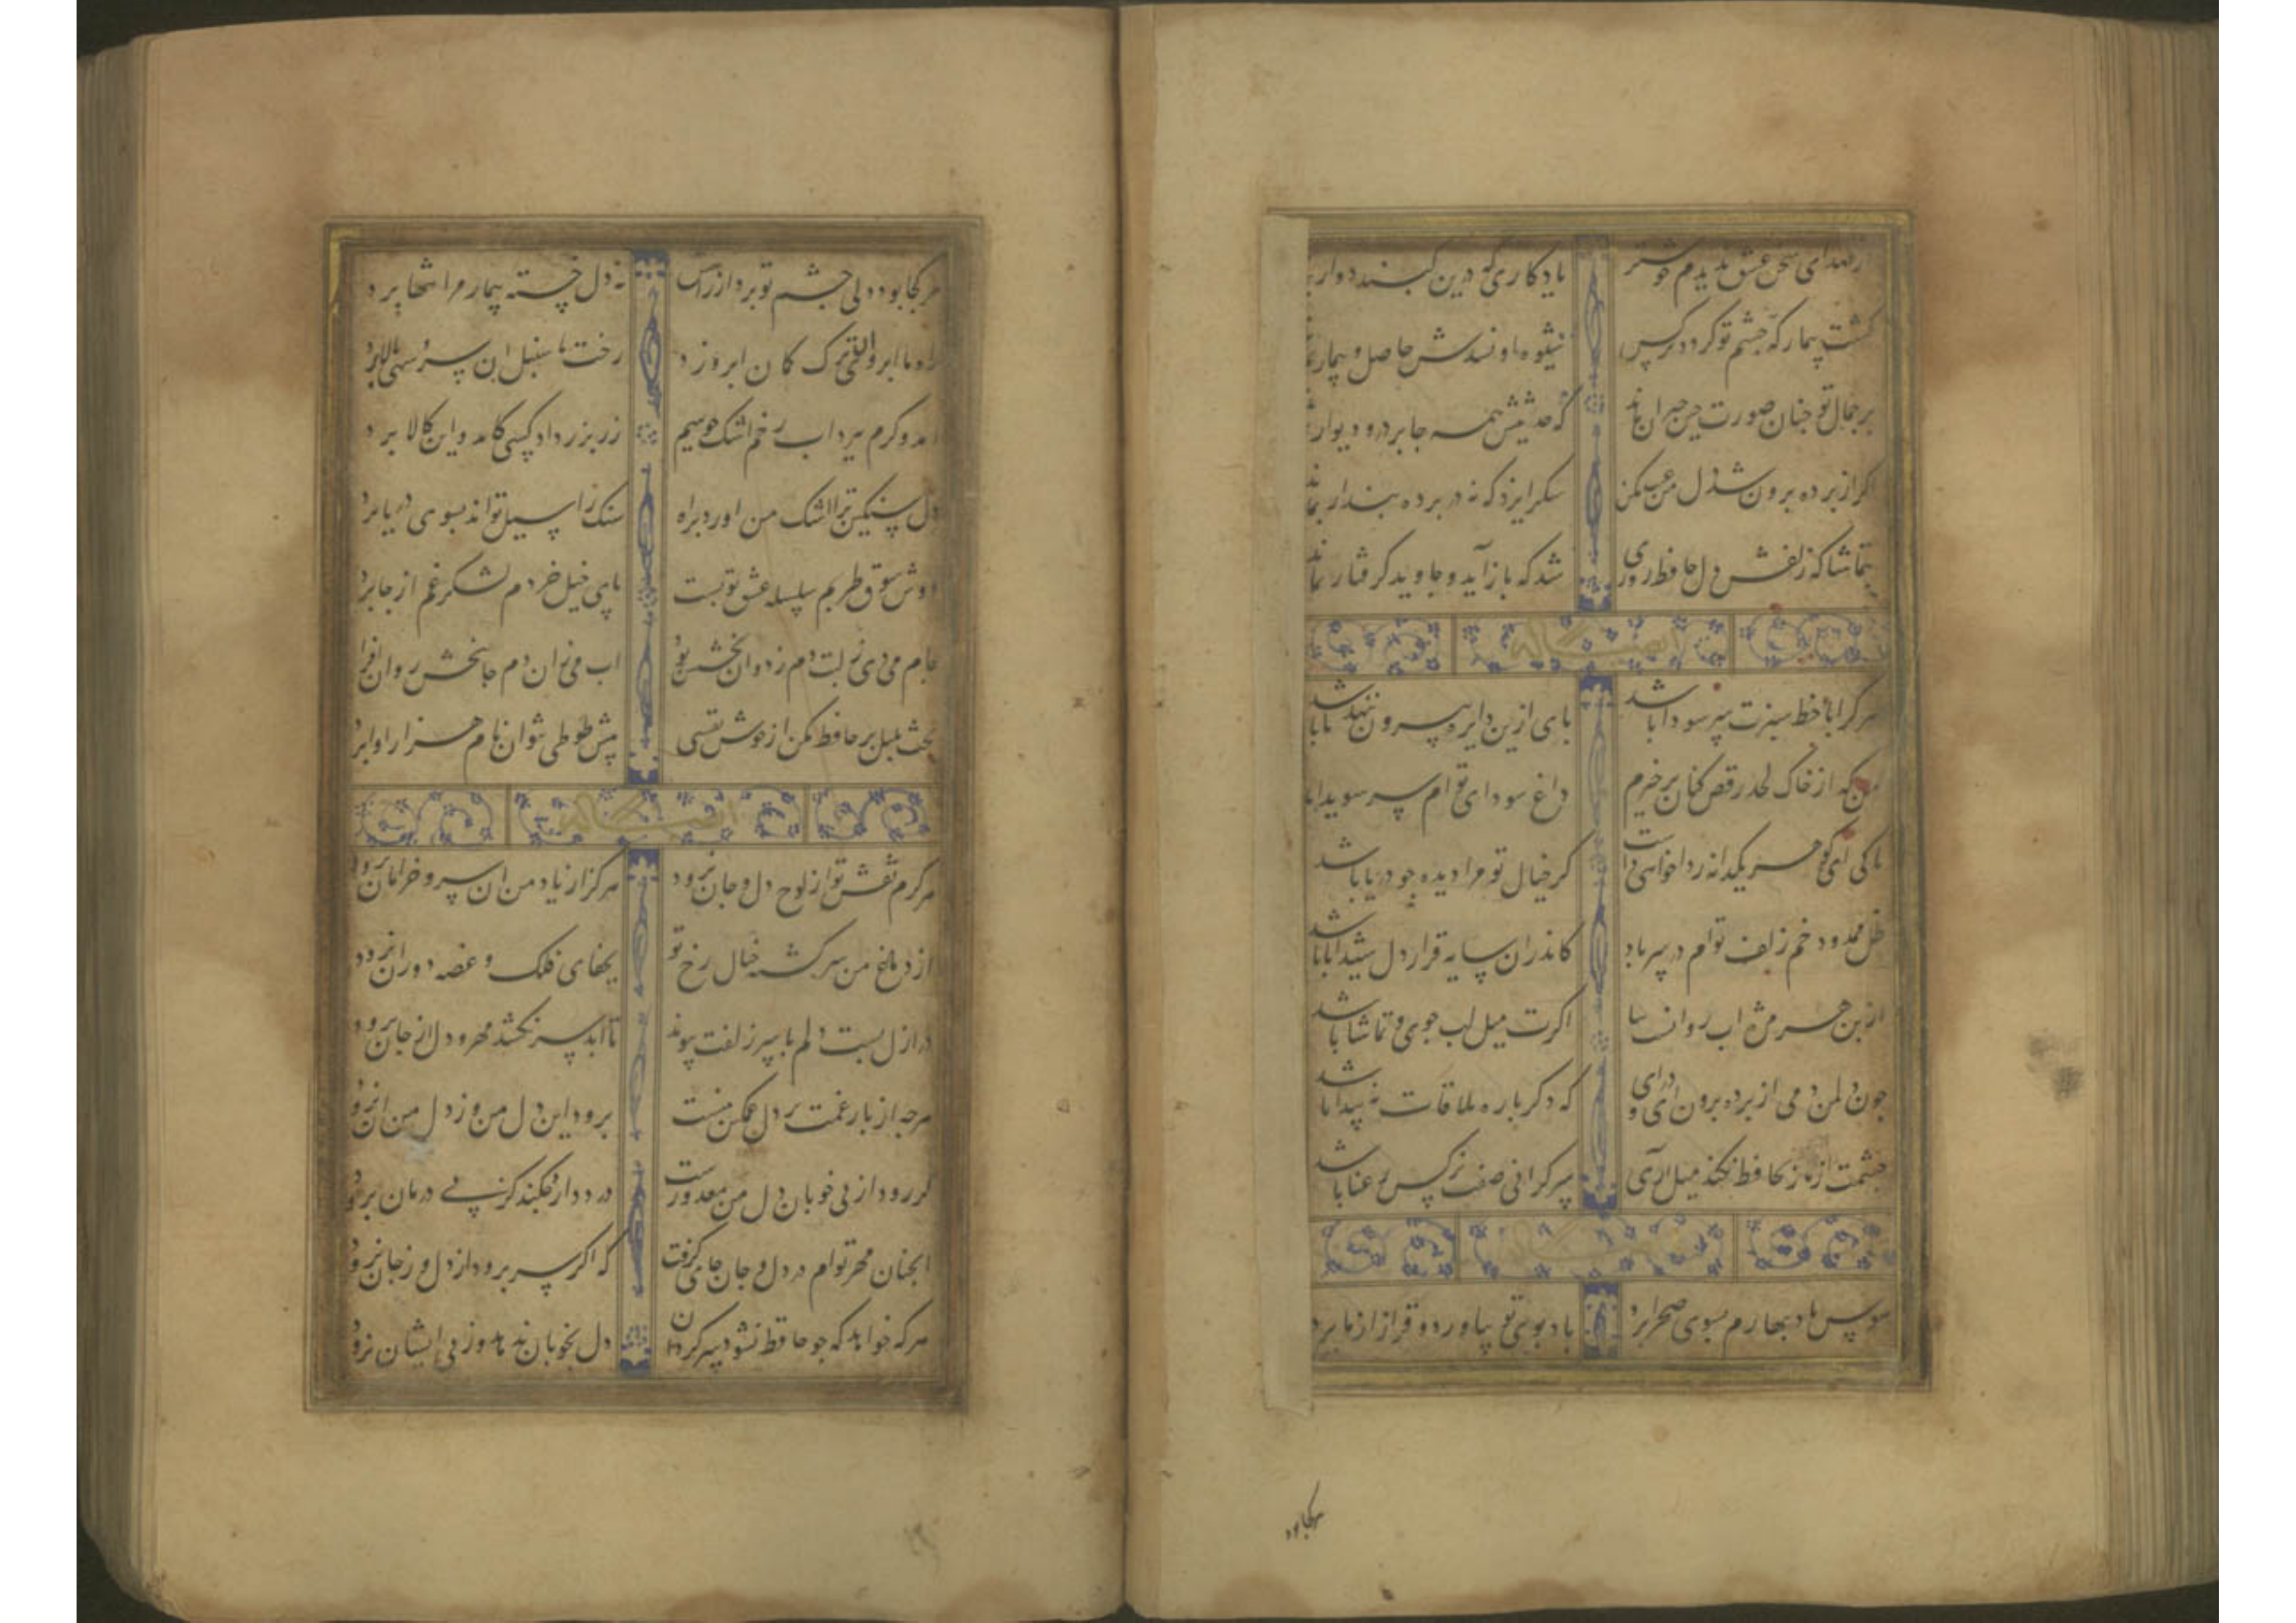 از صدای سخن عشق ندیدم خوشتر یادکاری که درین کنبد دوار
کشت بیمار که چشم تو کردد نرکس شیوه او نشدش حاصل و بیمار
بر جمال تو چنان صورت چین حیران ماند که حدیثش همه جا بر در و دیوار
اکر از پرده برون شد دل من عیب مکن شکر ایزد که نه در پرده پندار بماند
بتماشاکه زلفش دل حافظ روزی شد که باز آید و جاوید کرفتار بماند
هر کرا با خط سبزت سر سودا باشد پای ازین دایره بیرون ننهد تا باشد
من که از خاک لحد رقص کنان برخیزم داغ سودای توام سر سویدا
تا کی ای کوهر یکدانه روا خواهی داشت کز خیال تو مرا دیده چو دریا باشد
ظل ممدود خم زلف توام در سر باد کاندران سایه قرار دل شیدا باشد
از بن هر مژه اب روانست بیا اکرت میل لب جوی و تماشا باشد
چون دل من دمی از پرده برون ای و درای که دکر باره ملاقات نه پیدا باشد
چشمت از ناز بحافظ نکند میل آری سرکرانی صفت نرکس رعنا باشد
هوس باد بهارم بسوی صحرا برد باد بوی تو بیاورد و قرار از ما برد
هر کجا بود
هر کجا بود دلی چشم تو برد از راه نه دل خسته بیمار مرا تنها برد
راه ما ابروی ان ترک کمان ابرو زد رخت ما سنبل ان سرو سهی بالا برد
امد و کرم ببرد اب رخم اشک چو سیم زر بزر داد کسی کامد و این کالا برد
دل سنکین ترا اشک من اورد براه سنک را سیل تواند بسوی دریا برد
دوش شوق طربم سلسله عشق تو بست پای خیل خردم لشکر غم از جا برد
جام می دی ز لبت دم ز روان بخشی زد اب می ان دم جانبخش روان افزا
بحث بلبل بر حافظ مکن از خوش نفسی پیش طوطی نتوان نام هزار اوا برد
هرکزم نقش تو از لوح دل و جان نرود هرکز از یاد من ان سرو خرامان نرود
از دماغ من سرکشته خیال رخ تو بجفای فلک و غصه دوران نرود
در ازل بست دلم با سر زلفت پیوند تا ابد سر نکشد مهر و دل از جا نرود
هرچه از بار غمت بر دل مسکین منست برود این دل من وز دل من ان نرود
کر رود از پی خوبان دل من معذورست درد دارد چکند کز پی درمان نرود
انچنان مهر توام در دل و جان جای کرفت که اکر سر برود از دل و از جان نرود
هر که خواهد که چو حافظ نشود سرکردان دل بخوبان ندهد وز پی ایشان نرود